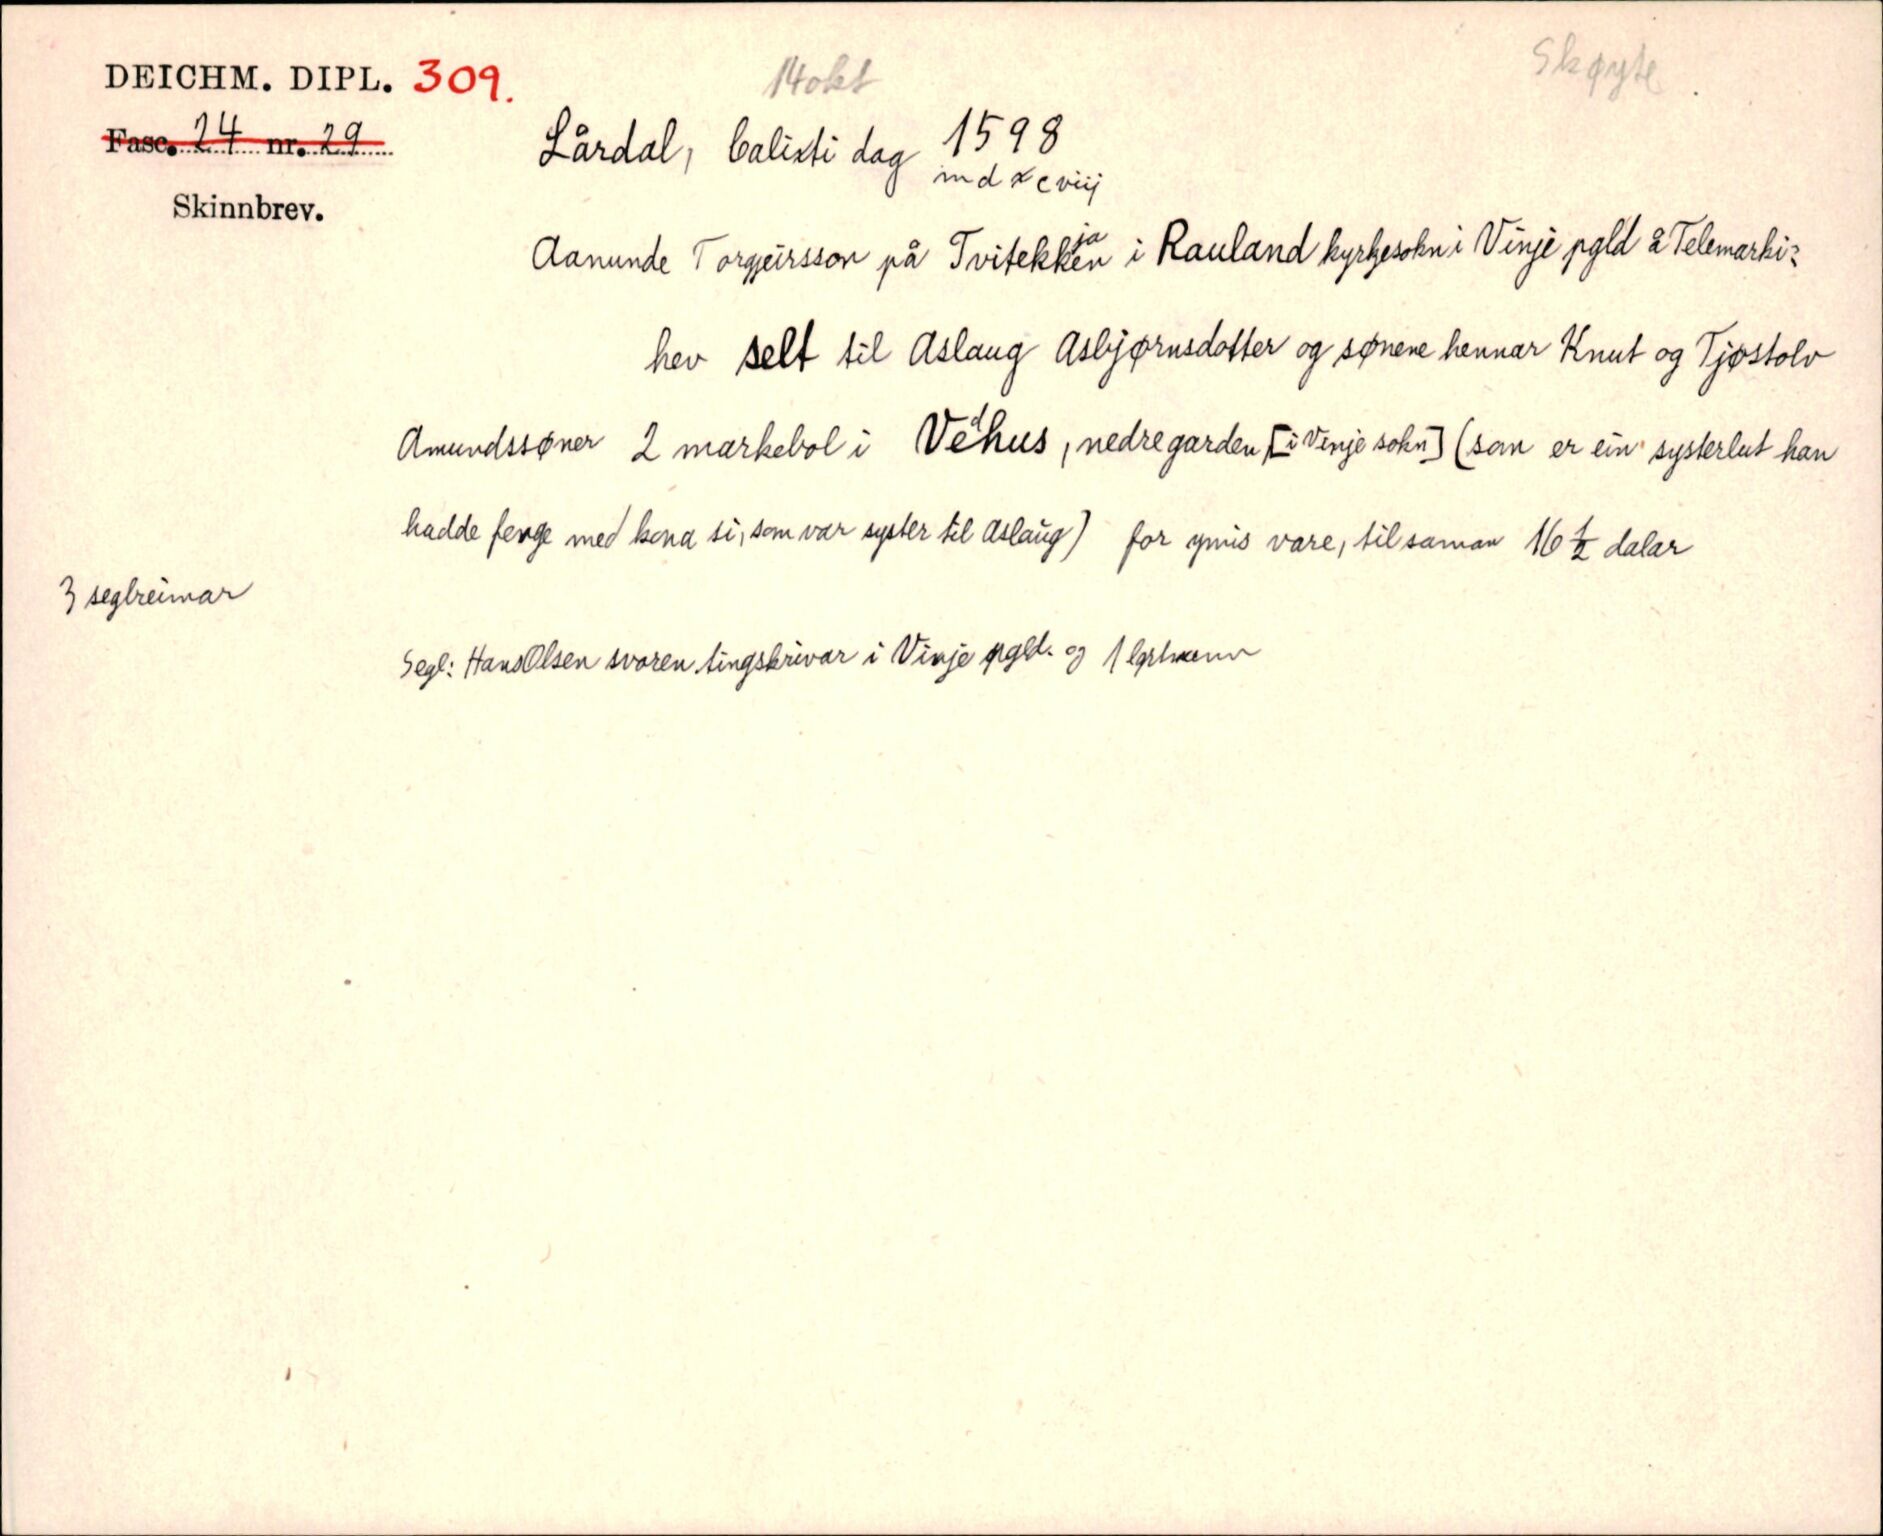 DEICHM. DIPL. 309.
14 okt
Skøyte
Fasc. 24 nr. 29
Lårdal, Calixti dag 1598
mdxcviij
Skinnbrev.
Aanunde Torgjeirsson på Tvitekkja en i Rauland kyrkjesokn i Vinje pgld å Telemarki:
hev selt til Aslaug Asbjørnsdotter og sønene hennar Knut og Tjøstolv
Amundssøner 2 markebol i Vedhus, nedregarden [i Vinje sokn] (som er ein systerlut han
hadde fenge med kona si, som var syster til Aslaug) for ymis vare, tilsaman 16 1/2 dalar
3 seglreimar
Segl: Hans Olsen svoren tingskrivar i Vinje pgld. og 1 lgrtmann